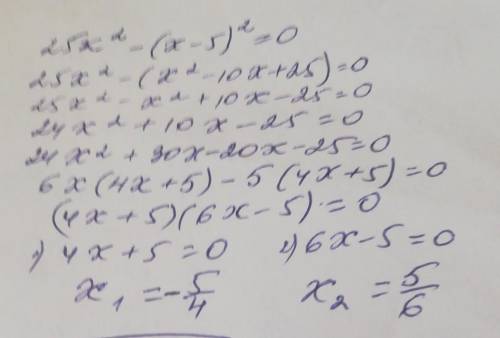 25x² - (x-5)² = 0
25x² - (x² - 10x + 25) = 0
25x² - x² + 10x - 25 = 0
24x² + 10x - 25 = 0
24x² + 30x - 20x - 25 = 0
6x(4x+5) - 5(4x+5) = 0
(4x+5)(6x-5) = 0
1) 4x+5 = 0 2) 6x-5 = 0
x₁ = -5/4 x₂ = 5/6